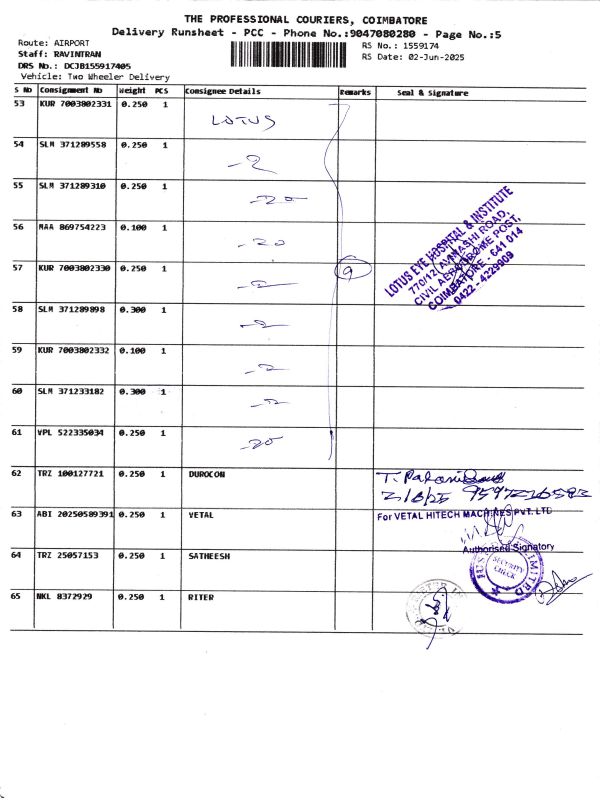 THE PROFESSIONAL COURIERS, COIMBATORE
Delivery Runsheet - PCC - Phone No.:9047080280 - Page No.:5
Route: AIRPORT
Staff: RAVINTRAN
DRS No.: DCJB155917405
Vehicle: Two Wheeler Delivery
RS No.: 1559174
RS Date: 02-Jun-2025
S No Consignment No Weight PCS Consignee Details Remarks Seal & Signature
53 KUR 7003802331 0.250 1 LOTUS
54 SLM 371289558 0.250 1
55 SLM 371289310 0.250 1
56 MAA 869754223 0.100 1
57 KUR 7003802330 0.250 1 9
58 SLM 371289898 0.300 1
59 KUR 7003802332 0.100 1
60 SLM 371233182 0.300 1
61 VPL 522335034 0.250 1
LOTUS EYE HOSPITAL & INSTITUTE
770/12, AVINASHI ROAD,
CIVIL AERODROME POST,
COIMBATORE - 641 014
0422 - 4229909
62 TRZ 100127721 0.250 1 DUROCON
63 ABI 20250589391 0.250 1 VETAL
For VETAL HITECH MACHINES PVT. LTD
Authorised Signatory
64 TRZ 25057153 0.250 1 SATHEESH
SECURITY
CHECK
LIMITED
65 NKL 8372929 0.250 1 RITER